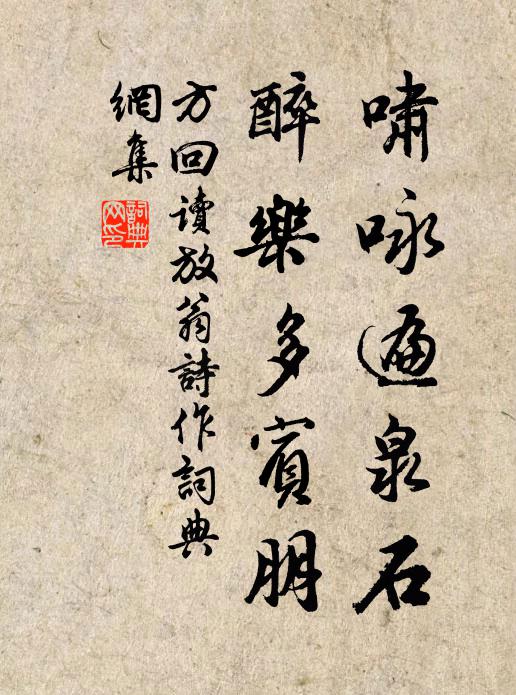 嘯咏遍泉石
醉樂多賓朋
方回讀放翁詩作詞典
網集
詞典网印